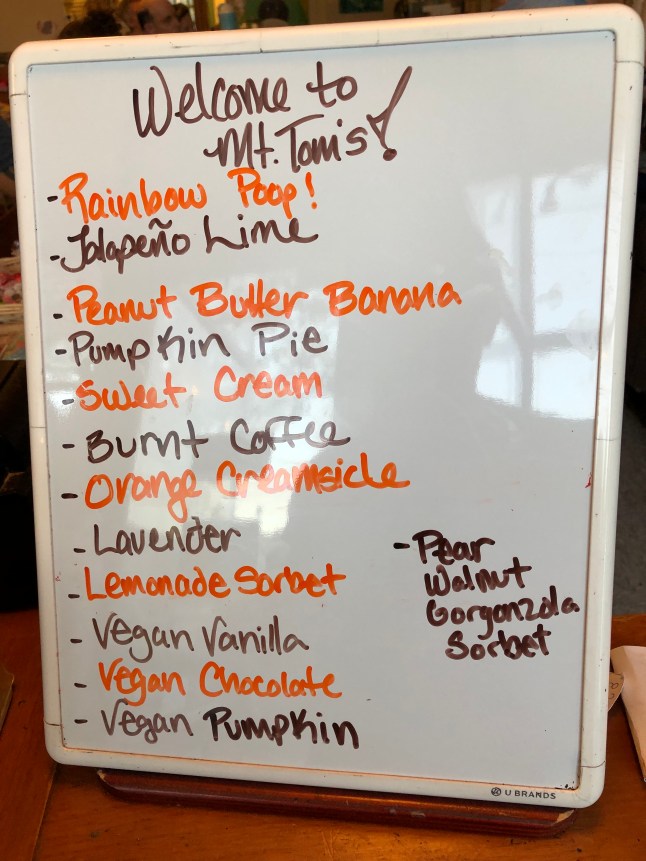 Welcome to
Mt. Tom's!
- Rainbow Poop!
- Jalapeño Lime
- Peanut Butter Banana
- Pumpkin Pie
- Sweet Cream
- Burnt Coffee
- Orange Creamsicle
- Lavender
- Lemonade Sorbet
- Vegan Vanilla
- Vegan Chocolate
- Vegan Pumpkin
- Pear
Walnut
Gorgonzola
Sorbet
U BRANDS